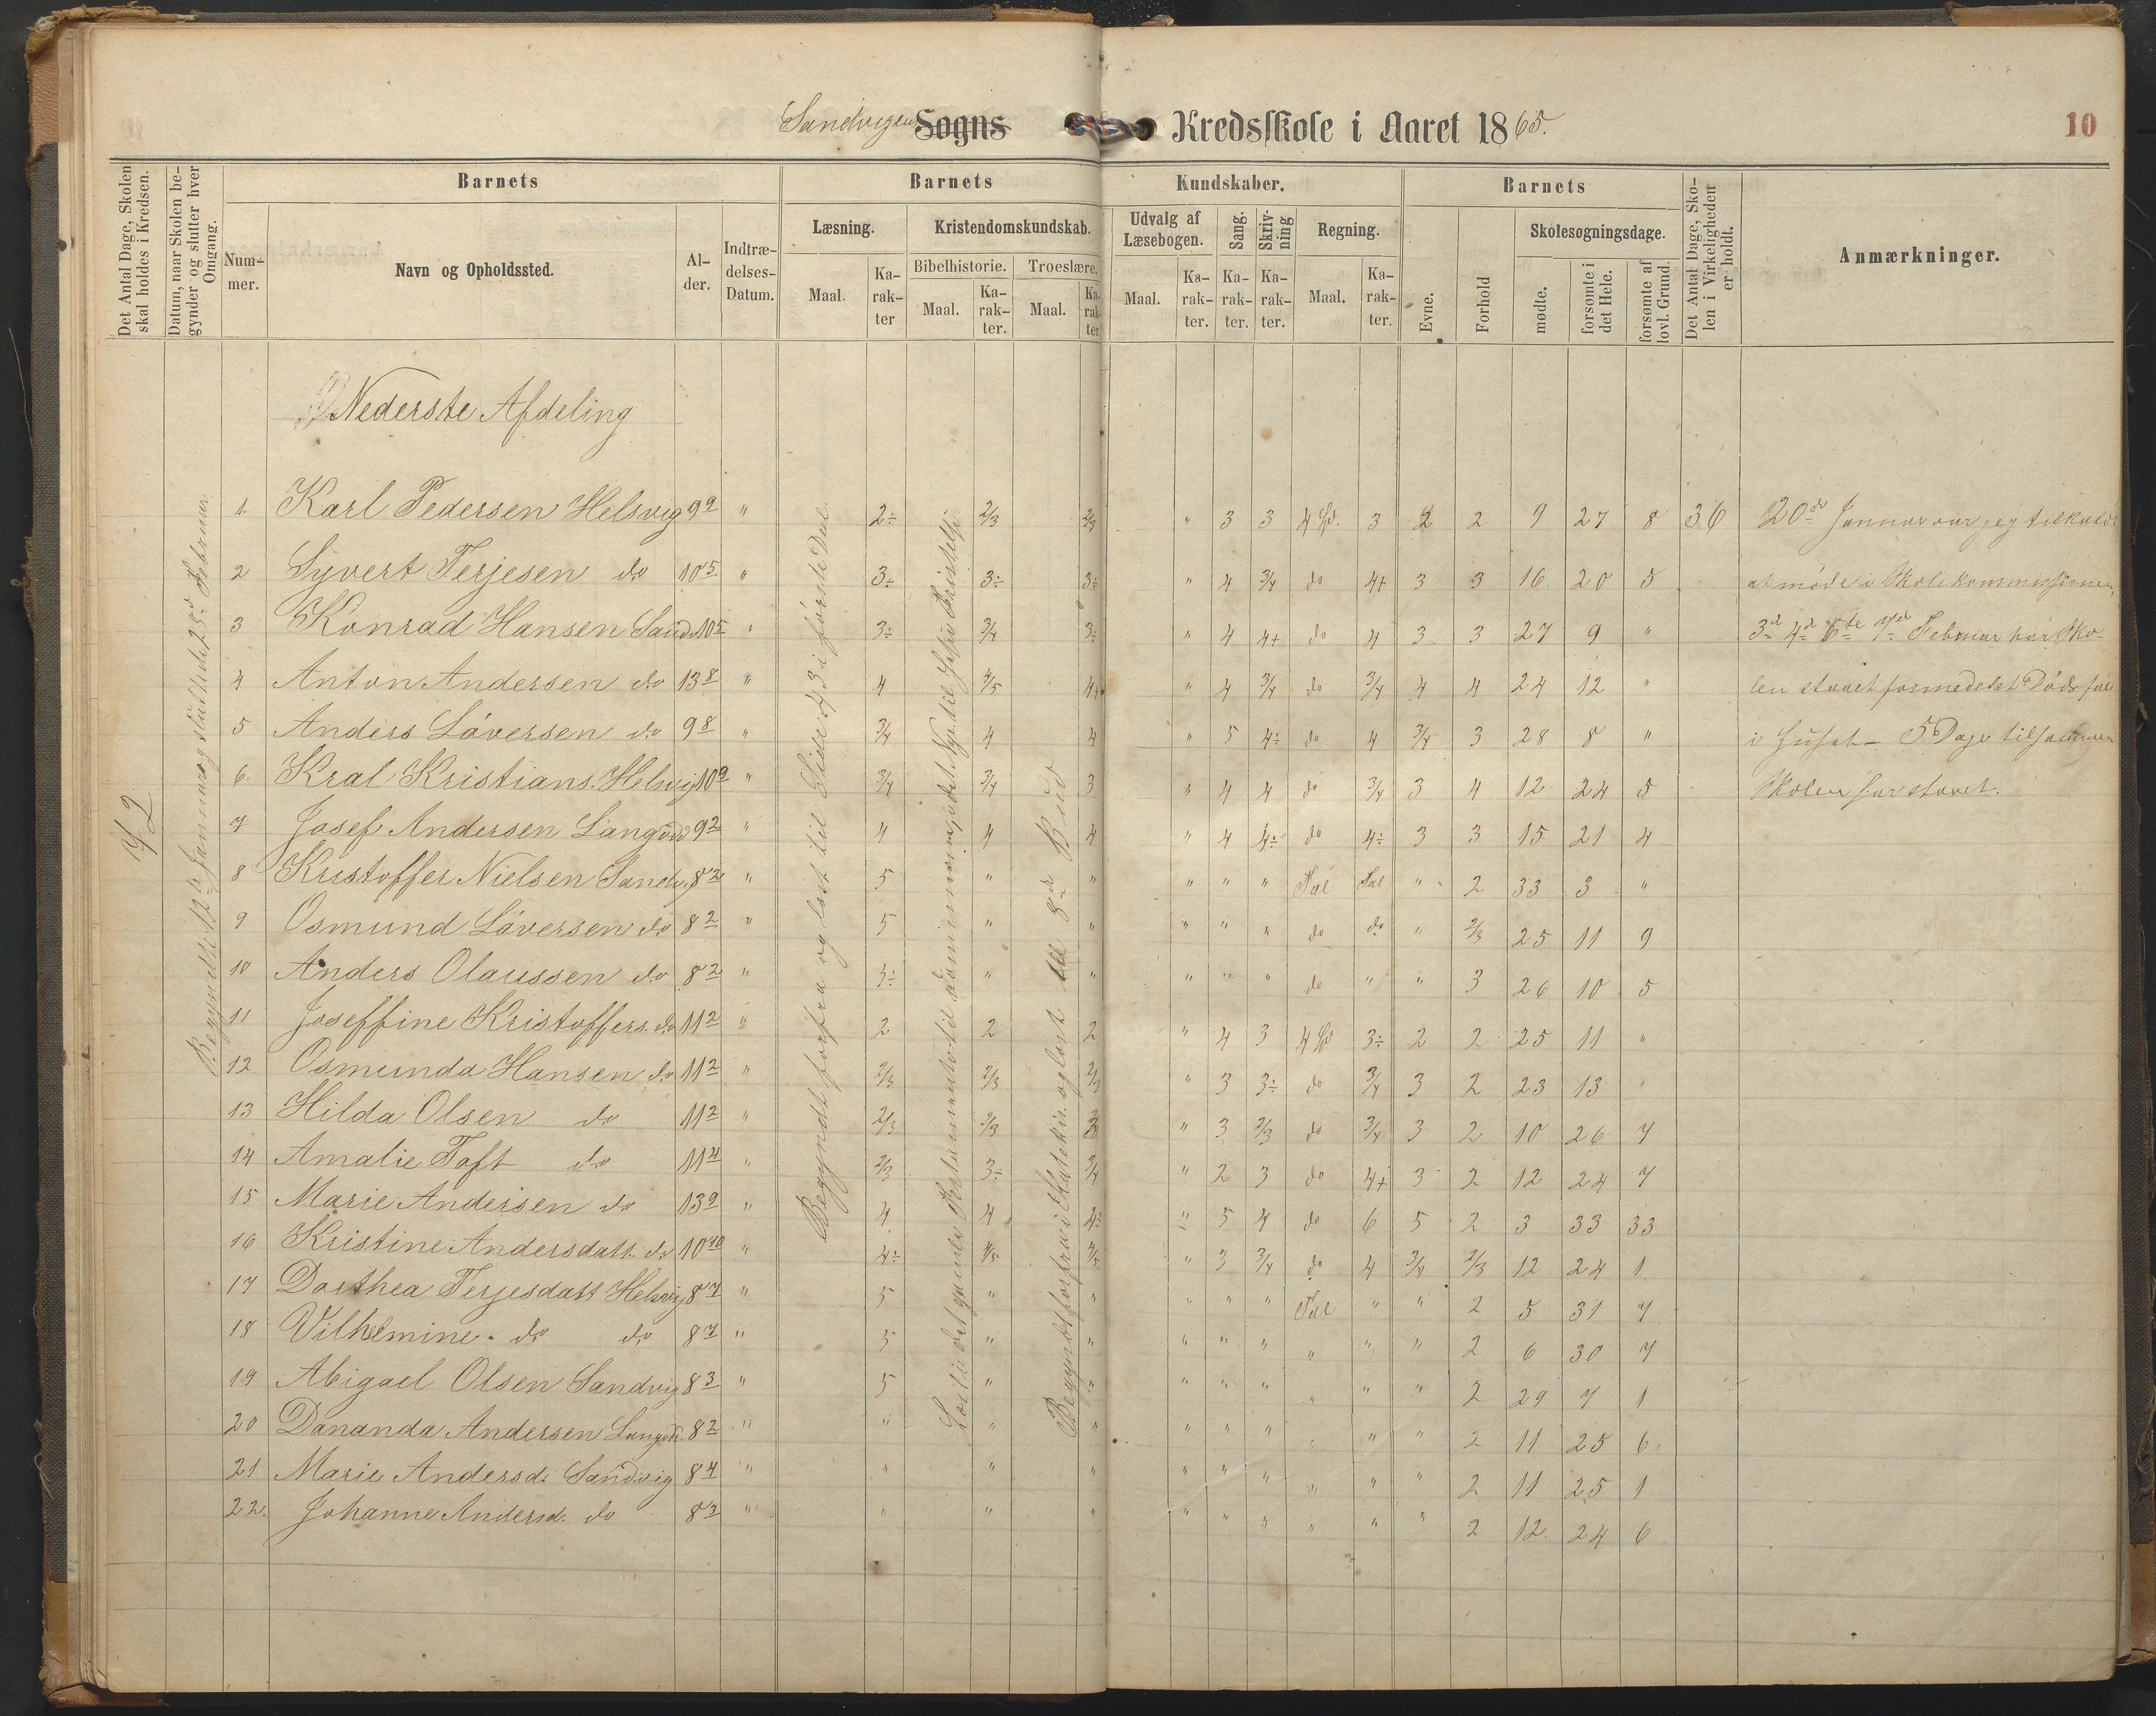 Sandvigens Sogns Kredsskole i Aaret 1865.
10
Det Antal Dage, Skolen skal holdes i Kredsen.
Datum, naar Skolen begynder og slutter hver Omgang.
Barnets
Barnets
Kundskaber.
Barnets
Det Antal Dage, Skolen i Virkeligheden er holdt.
Anmærkninger.
Nummer.
Navn og Opholdssted.
Alder.
Indtrædelses-Datum.
Læsning.
Kristendomskundskab.
Udvalg af Læsebogen.
Sang.
Skrivning
Regning.
Evne.
Forhold
Skolesøgningsdage.
Bibelhistorie.
Troeslære.
Maal.
Karakter
Maal.
Karakter.
Maal.
Karakter.
Maal.
Karakter.
Karakter.
Karakter.
Maal.
Karakter.
mødte.
forsømte i det Hele.
forsømte af lovl. Grund.
Nederste Afdeling
42
Begyndte 12te Januar og sluttede 25de Februar
Begyndt forfra og læst til Side 43 i første Deel.
Begyndt forfra i Katekis. og læst til 8de Bud
1. Karl Pedersen Helsvig 9 9 " 2÷ 2/3 2/3 " 3 3 4 Sp. 3 2 2 9 27 8 36 20de Januar var jeg tilkaldt
2 Syvert Terjesen do 10 5 " 3÷ 3÷ 3÷ " 4 3/4 do 4+ 3 3 16 20 5 at møde i Skolekommissionen,
3 Konrad Hansen Sandv. 10 5 " 3÷ 3/4 3÷ " 4 4+ do 4 3 3 27 9 " 3de 4de 6te 7de Februar har Sko-
4 Anton Andersen do 13 8 " 4 4/5 4+ " 4 3/4 do 3/4 4 4 24 12 " len staaet formedelst Dødsfald
5 Anders Låversen do 9 8 " 3/4 4 4 " 5 4÷ do 4 3/4 3 28 8 " i Huset – 5 Dage tilsammen
6. Kral Kristians. Helsvig 10 9 " 3/4 3/4 3 " 4 4 do 3/4 3 4 12 24 5 Skolen har staaet.
7 Josef Andersen Langødd 9 2 " 4 4 4 " 4 4÷ do 4÷ 3 3 15 21 4
8 Kristoffer Nielsen Sandv. 8 2 " 5 " " " " " Tal Tal " 2 33 3 "
9 Osmund Låversen do 8 2 " 5 " " " " " do do " 2/3 25 11 9
10 Anders Olaussen do 8 2 " 5÷ " " " " " do " " 3 26 10 5
11 Joseffine Kristoffers. do 11 2 " 2 2 2 " 4 3 4 Sp 3÷ 2 2 25 11 "
12 Osmunda Hansen do 11 2 " 2/3 2/3 2/3 " 3 3÷ do 3/4 3 2 23 13 "
13 Hilda Olsen do 11 2 " 2/3 2/3 3 " 3 2/3 do 3/4 3 2 10 26 7
14 Amalie Toft do 11 4 " 2/3 3÷ 3/4 " 2 3 do 4+ 3 2 12 24 7
15 Marie Andersen do 13 9 " 4 4 4÷ " 5 4 do 6 5 2 3 33 33
16 Kristine Andersdatt. do 10 10 " 4÷ 4/5 4/5 " 3 3/4 do 4 3/4 2/3 12 24 1
17 Dorthea Terjesdatt Helsvig 8 7 " 5 " " " " " Tal " " 2 5 31 7
18 Vilhelmine. do do 8 7 " 5 " " " " " " " " 2 6 30 7
19 Abigael Olsen Sandvig 8 3 " 5 " " " " " " " " 2 29 7 1
20 Dananda Andersen Langødd. 8 2 " " " " " " " " " " 2 11 25 6
21 Marie Andersd. Sandvig 8 4 " " " " " " " " " " 2 11 25 1
22. Johanne Andersd. do 8 3 " " " " " " " " " " 2 12 24 6